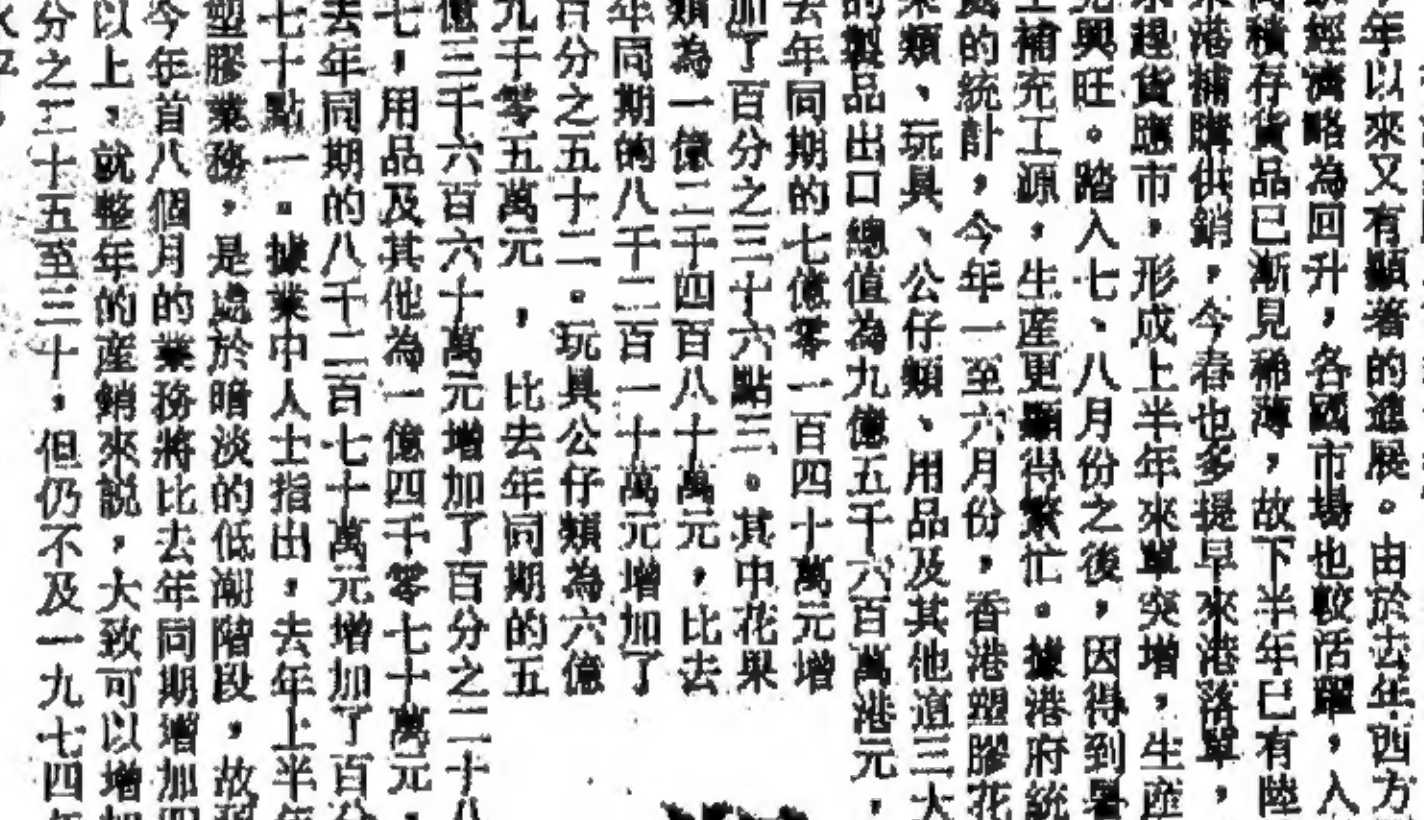 年以來又有顯著的進展。由於去年西方
經濟略為回升，各國市場也較活躍，入
積存貨品已漸見稀薄，故下半年已有陸
來港補購供銷，今春也多提早來港落單，
趕貨應市，形成上半年來單突增，生產
興旺。踏入七、八月份之後，因得到暑
補充工源，生產更顯得繁忙。據港府統
處的統計，今年一至六月份，香港塑膠花
果類、玩具、公仔類、用品及其他這三大
的製品出口總值為九億五千六百萬港元，
去年同期的七億零一百四十萬元增
加了百分之三十六點三。其中花果
類為一億二千四百八十萬元，比去
年同期的八千二百一十萬元增加了
百分之五十二。玩具公仔類為六億
九千零五萬元，比去年同期的五
億三千六百六十萬元增加了百分之二十八
七，用品及其他為一億四千零七十萬元，
去年同期的八千二百七十萬元增加了百分
七十點一。據業中人士指出，去年上半年
塑膠業務，是處於暗淡的低潮階段，故
今年首八個月的業務將比去年同期增加四
以上，就整年的產銷來說，大致可以增加
分之二十五至三十，但仍不及一九七四年
水平，